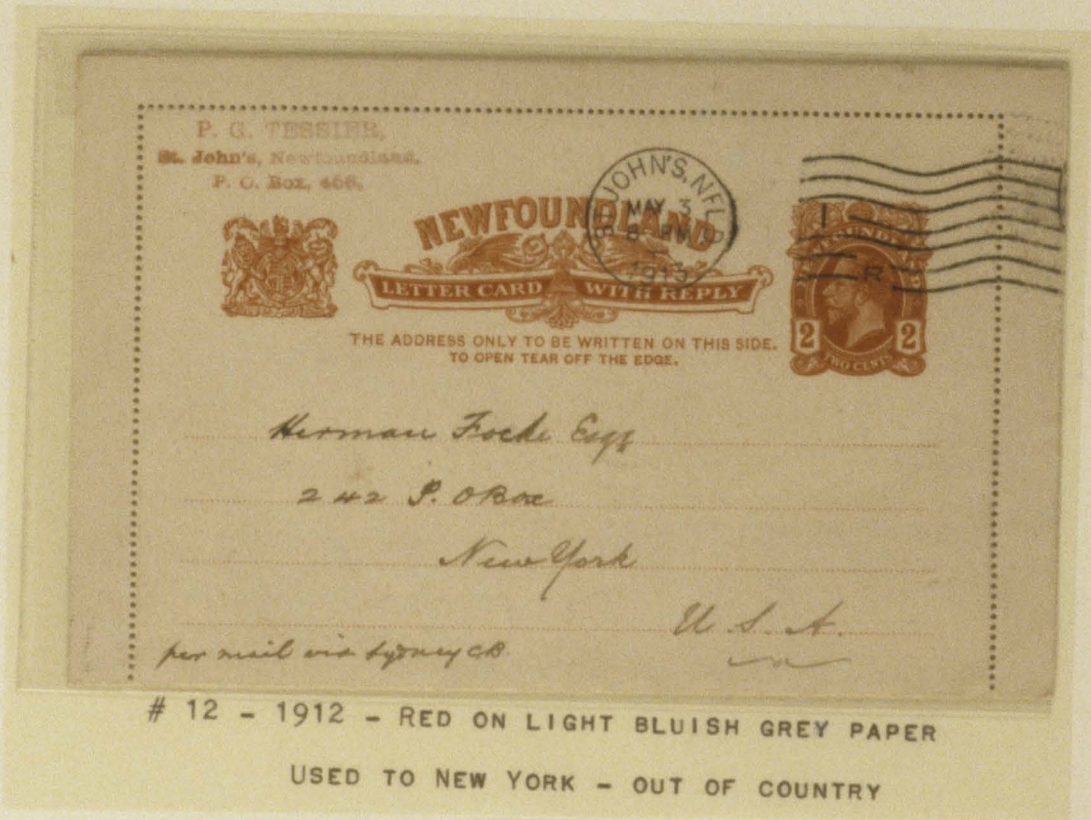 P. G. TESSIER,
St. John's, Newfoundland.
P. O. Box, 466,
ST. JOHN'S, NFLD
MAY 3
8 PM
1913
NEWFOUNDLAND
LETTER CARD WITH REPLY
THE ADDRESS ONLY TO BE WRITTEN ON THIS SIDE.
TO OPEN TEAR OFF THE EDGE.
I
R
2 2
TWO CENTS
Herman Focke Esqr
242 P. O Box
New York
U. S. A.
per mail via Sydney CB
# 12 - 1912 - RED ON LIGHT BLUISH GREY PAPER
USED TO NEW YORK - OUT OF COUNTRY